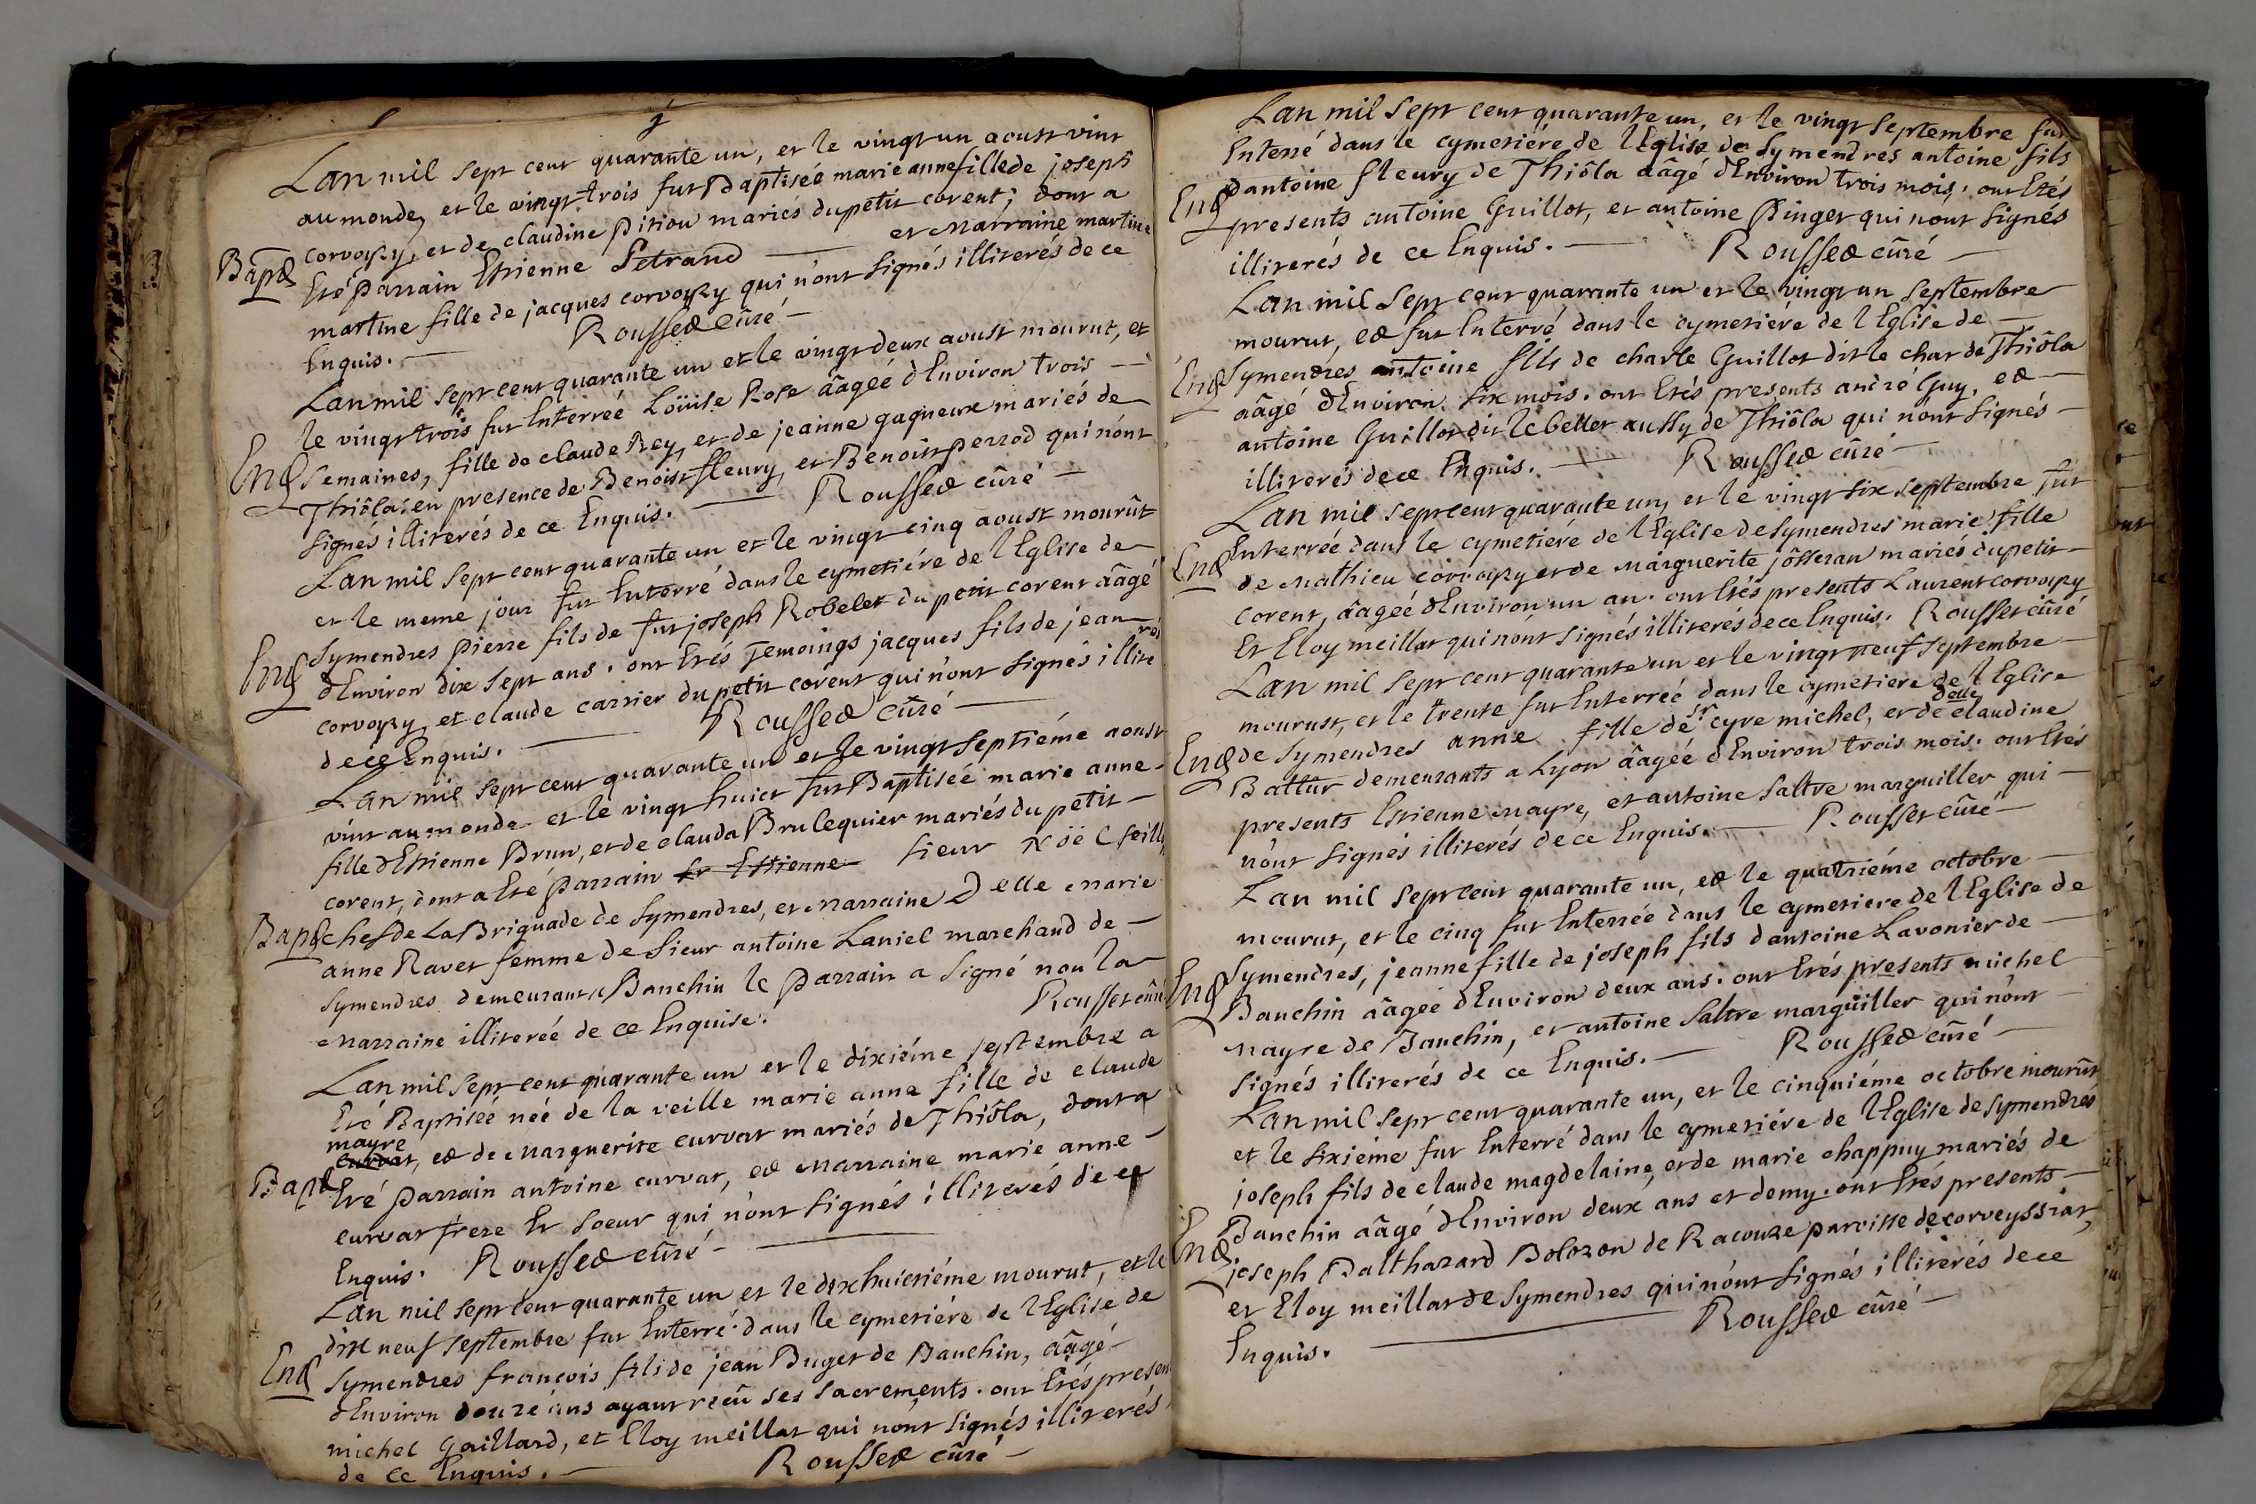 Lan mil sept cent quarante un, et le vingt un aoust vint
au monde, et le vingt trois fut Baptiseé marie anne fille de joseph
corvoysy, et de claudine pitiou mariés du petit corent; dont a
Bapt
Eté parrain Etienne Petrand — et marraine martine
martine fille de jacques corvoysy qui n'ont signés illiterés de ce
Enquis. — Rousset curé —
Lan mil sept cent quarante un et le vingt deux aoust mourut, et
le vingt trois fut Enterreé Loüise Rose âàgeé d'Environ trois —
Ent
semaines, fille de claude Rey, et de jeanne gagneux mariés de
Thiôla: en presence de Benoist fleury, et Benoist perrod qui n'ont
signés illiterés de ce Enquis. — Rousset curé —
Lan mil sept cent quarante un et le vingt cinq aoust mourût
et le meme jour fut Enterré dans le cymetiére de l'Eglise de
Ent
Symendres pierre fils de fut joseph Robelet du petit corent âàgé
d'Environ dix sept ans. ont Etés Temoings jacques fils de jean
corvoysy, et claude carrier du petit corent qui n'ont signés illite
rés
de ce Enquis. — Rousset curé —
Lan mil sept cent quarante un et le vingt septiéme aoust
vint au monde et le vingt huict fut Baptiseé marie anne
fille d'Etienne Brun, et de clauda Brulequier mariés du petit —
corent, dont a Eté parrain sr Estienne sieur Nöel feille
Bapt
chef de La Briguade de Symendres, et marraine Delle marie
anne Ravet femme de sieur antoine Laniel marchand de —
Symendres demeurant a Banchin le parrain a signé non la
marraine illitereé de ce Enquise. Rousset curé
Lan mil sept cent quarante un et le dixiéme septembre a
Eté Baptiseé neé de la veille marie anne fille de claude
mayre
curvat, et de marguerite curvat mariés de Thiôla, dont a
Bapt
Eté parrain antoine curvat, et marraine marie anne —
curvat frere et soeur qui n'ont signés illiterés de ce
Enquis. Rousset curé —
Lan mil sept cent quarante un et le dixhuictiéme mourut, et le
dix neuf septembre fut Enterré dans le cymetiére de l'Eglise de
Ent
Symendres francois fils de jean Buget de Banchin, âàgé
d'Environ douze ans ayant reçû ses sacrements. ont Etés presen
michel Gaillard, et Eloy meillat qui n'ont signés illiterés
de ce Enquis. — Rousset curé —
Lan mil sept cent quarante un, et le vingt septembre fut
Enterré dans le cymetiére de l'Eglise de Symendrés antoine fils
Ent
d'antoine fleury de Thiôla âàgé d'Environ trois mois; ont Etés
presents antoine Guillot, et antoine pinget qui n'ont signés
illiterés de ce Enquis. — Rousset curé —
Lan mil sept cent quarante un et le vingt un septembre
mourut, et fut Enterré dans le cymetiére de l'Eglise de —
Ent
Symendres antoine fils de charle Guillot dit le chat de Thiôla
âàgé d'Environ six mois. ont Etés presents andré Guy, et —
antoine Guillot dit le bellet aussy de Thiôla qui n'ont signés —
illiterés de ce Enquis. — Rousset curé —
Lan mil sept cent quarante un, et le vingt six septembre fut
Enterreé dans le cymetiére de l'Eglise de Symendres marie fille
Ent
de mathieu corvoysy et de marguerite jôsseran mariés du petit —
corent, âàgeé d'Environ un an. ont Etés presents Laurent corvoysy
Et Eloy meillat qui n'ont signés illiterés de ce Enquis. Rousset curé
Lan mil sept cent quarante un et le vingt neuf septembre —
mourust, et le trente fut Enterreé dans le cymetiere de l'Eglise
Ent
de Symendres anne fille de sr cyre michel, et de delle claudine
Battur demeurants a Lyon âàgeé d'Environ trois mois. ont Etés
presents Estienne mayre, et antoine saltre marguiller qui —
n'ont signés illiterés de ce Enquis. — Rousset curé —
Lan mil sept cent quarante un, et le quatriéme octobre —
mourut, et le cinq fut Enterreé dans le cymetiere de l'Eglise de
Ent
Symendres, jeanne fille de joseph fils d'antoine Lavonier de —
Banchin âàgeé d'Environ deux ans. ont Etés presents michel
mayre de Banchin, et antoine saltre marguiller qui n'ont —
signés illiterés de ce Enquis. — Rousset curé —
Lan mil sept cent quarante un, et le cinquiéme octobre mourût
et le sixiéme fut Enterré dans le cymetiére de l'Eglise de Symendrés
joseph fils de claude magdelaine, et de marie chappuy mariés de
Banchin âàgé d'Environ deux ans et demy. ont Etés presents —
Ent
joseph Balthazard Bolozon de Racouze paroisse de corveyssiat,
et Eloy meillat de Symendres qui n'ont signés illiterés de ce
Enquis. — Rousset curé —